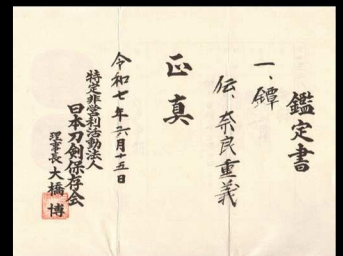 鑑定書
一、鐔
伝、奈良重義
正真
令和七年六月十五日
特定非営利活動法人
日本刀剣保存会
理事長 大橋 博